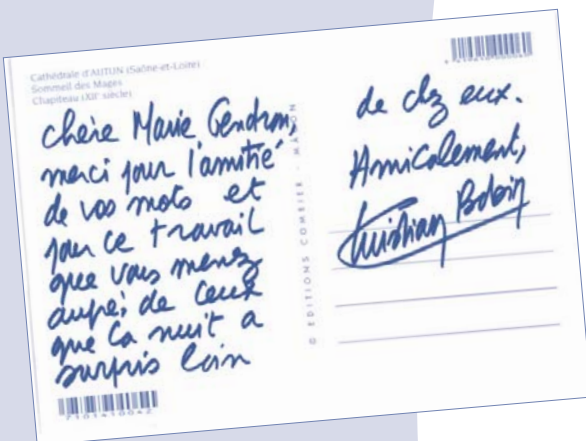 Cathédrale d'AUTUN (Saône-et-Loire)
Sommeil des Mages
Chapiteau (XIIe siècle)
chère Marie Gendron,
merci pour l'amitié
de vos mots et
pour ce travail
que vous menez
auprès de ceux
que la nuit a
surpris loin
7101410042
© EDITIONS COMBIER - MÂCON
de chez eux.
Amicalement,
Christian Bobin